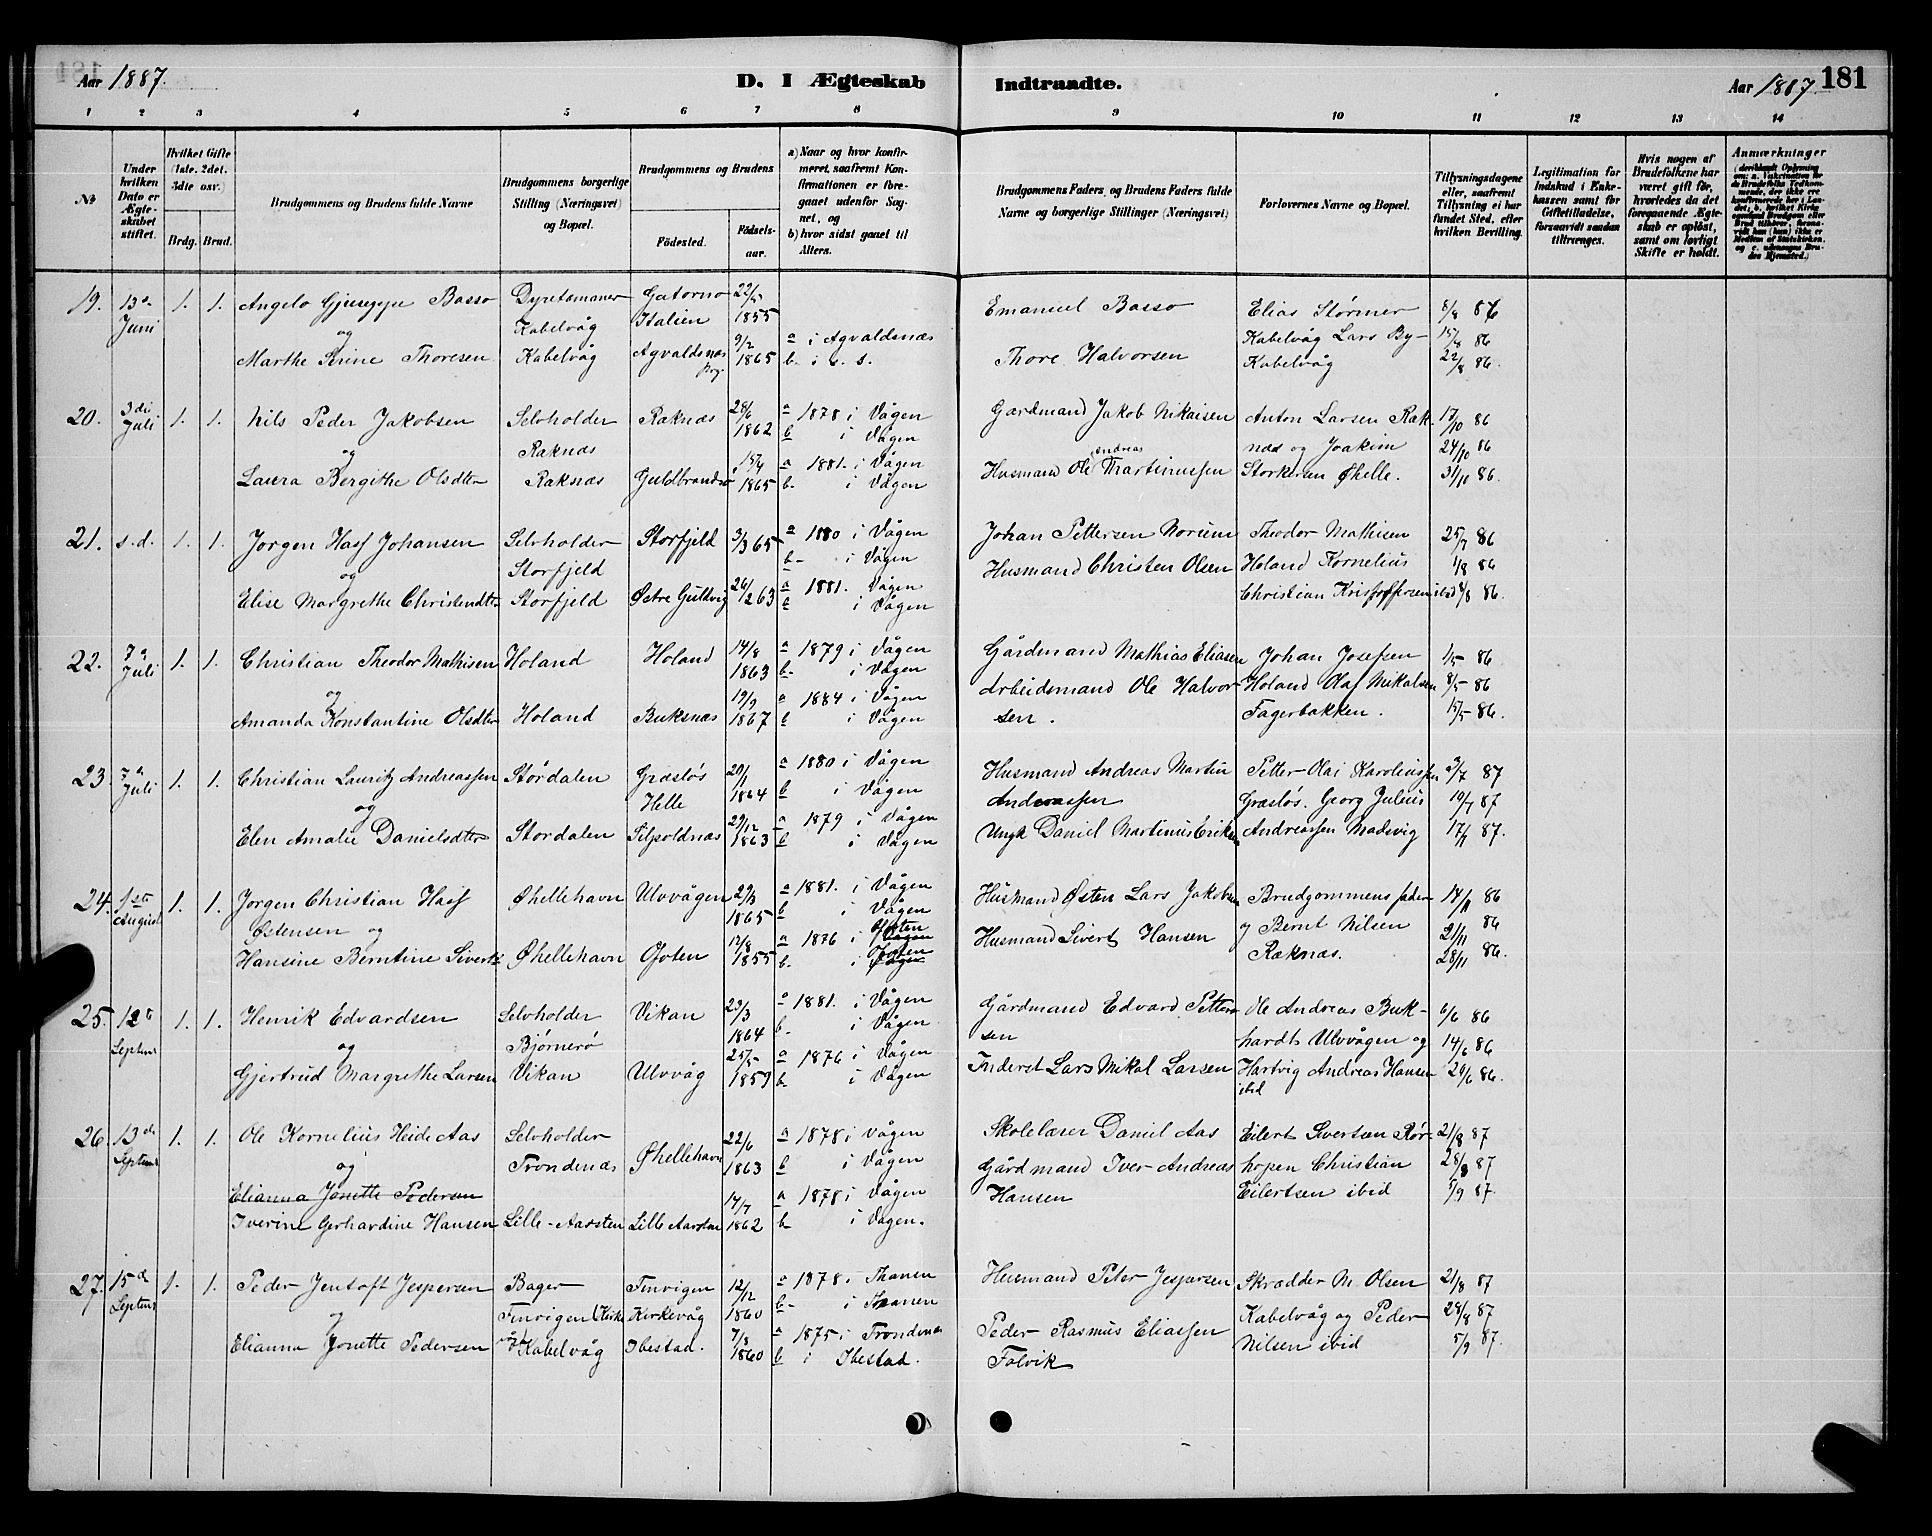 Aar 1887. D. I Ægteskab Indtraadte. Aar 1887. 181
1 2 3 4 5 6 7 8 9 10 11 12 13 14
№
Under hvilken Dato er Ægteskabet stiftet.
Hvilket Gifte (1ste, 2det, 3die osv.)
Brdg. Brud.
Brudgommens og Brudens fulde Navne
Brudgommens borgerlige Stilling (Næringsvei) og Bopæl.
Brudgommens og Brudens
Födested. Födsels-aar.
a) Naar og hvor konfirmeret, saafremt Konfirmationen er foregaaet udenfor Sognet, og
b) hvor sidst gaaet til Alters.
Brudgommens Faders og Brudens Faders fulde Navne og borgerlige Stillinger (Næringsvei)
Forlovernes Navne og Bopæl.
Tillysningsdagene eller, saafremt Tillysning ei har fundet Sted, efter hvilken Bevilling.
Legitimation for Indskud i Enkekassen samt for Giftetilladelse, forsaavidt saadan tiltrænges.
Hvis nogen af Brudefolkene har været gift för, hvorledes da det foregaaende Ægteskab er oplöst, samt om lovligt Skifte er holdt.
Anmærkninger
19. 13de Juni 1. 1. Angelo Gjuseppe Basso Dyretæmmer Kabelvåg Gatorno Italien 22/5 1855 Emanuel Basso Elias Størmer 8/8 86
og Kabelvåg Lars By- 15/8 86
Marthe Serine Thoresen Kabelvåg Agvaldsnæs 9/2 1865 a i Agvaldsnæs b. i s. s. Thore Halvorsen Kabelvåg 22/8 86.
20. 3die Juli 1. 1. Nils Peder Jakobsen Selvholder Raknæs Raknæs 28/6 1862 a 1878 i Vågen b i Vågen Gardmand Jakob Nikaisen Anton Larsen Rak- 17/10 86
og næs og Joakim 24/10 86
Laura Bergithe Olsdtr Raknæs Guldbrandsø 15/4 1865 a 1881. i Vågen b. i Vågen Husmand Ole Andreas Martinussen Storkersen Øhelle. 31/10 86.
21. s.d. 1. 1. Jørgen Hass Johansen Selvholder Storfjeld Storfjeld 3/3 65 a 1880 i Vågen b- i Vågen Johan Pettersen Norum Theodor Mathisen 25/7 86
og Husmand Christen Olsen Holand Kornelius 1/8 86
Elise Margrethe Christendtr Storfjeld Østre Gullvig 26/12 63 a 1881. Vågen b i Vågen Christian Kristoffersen ibid 8/8 86.
22. 7de Juli 1. 1. Christian Theodor Mathisen Holand Holand 14/8 1863 a 1879 i Vågen b- i Vågen Gårdmand Mathias Eliasen Johan Josefsen 1/5 86
og Arbeidsmand Ole Halvor- Holand Olaf Mikalsen 8/5 86
Amanda Konstantine Olsdtr Holand Buksnæs 19/9 1867 a 1884 i Vågen b i Vågen sen. Fagerbakken. 15/5 86.
23. 7de Juli 1. 1. Christian Lauritz Andreassen Stordalen Græsløs Helle 20/1 1864 a 1880 i Vågen b i Vågen Husmand Andreas Martin Petter Olai Karoliussen 3/7 87
og Andreassen Græsløs. Georg Julius 10/7 87
Elen Amalie Danielsdtr Stordalen Silpoldnæs 29/12 1863 a 1879 i Vågen b i Vågen Ungk Daniel Martinus Eriksen Andreassen Madsvig 17/7 87.
24. 1ste August 1. 1. Jørgen Christian Hass Østensen og Øhellehavn Ulvvågen 29/3 1865 a 1881. i Vågen b i Vågen Husmand Østen Lars Jakobsen Brudgommens fader 14/11 86
og Bernt Nilsen 21/11 86
Hansine Berntine Siverts Øhellehavn Ofoten 12/8 1855 a 1876 i Ofoten b. i Ofoten Husmand Sivert Hansen Raknæs. 28/11 86.
25. 12te Septemb 1. 1. Henrik Edvardsen Selvholder Bjørnerø Vikan 23/3 1864 a 1881. i Vågen b. i Vågen Gårdmand Edvard Petter- Ole Andreas Buk- 6/6 86
og sen hardt Ulvvågen og 14/6 86
Gjertrud Margrethe Larsen Vikan Ulvvåg 25/5 1859 a 1876 i Vågen b. i Vågen Inderst Lars Mikal Larsen Hartvig Andreas Hansen ibid 20/6 86.
26. 13de Septemb 1. 1. Ole Kornelius Heide Aas Selvholder Trondenæs Øhellehavn 22/6 1863 a 1878 i Vågen b i Vågen Skolelærer Daniel Aas Eilert Sivertsen Rør- 21/8 87
og Gårdmand Iver Andreas hopen Christian 28/8 87
Elianna Jonette Pedersen Hansen Eilertsen ibid 5/9 87.
Iverine Gerhardine Hansen Lille-Aarsten Lille Aarsten 17/7 1862 a 1878 i Vågen b i Vågen.
27. 15de Septemb 1. 1. Peder Jentoft Jespersen Bager Finvigen Kirkevåg 12/12 1860 a 1878 i Thanen b- i Thanen Husmand Peter Jespersen Skrædder M. Olsen 21/8 87
og Finvigen (Kirke Kabelvåg og Peder 28/8 87
Elianna Jonette Pedersen våg) Kabelvåg Ibestad. 7/8 1860 a 1875 i Trondenæs b i Ibestad. Peder Rasmus Eliassen Folvik Nilsen ibid 5/9 87.